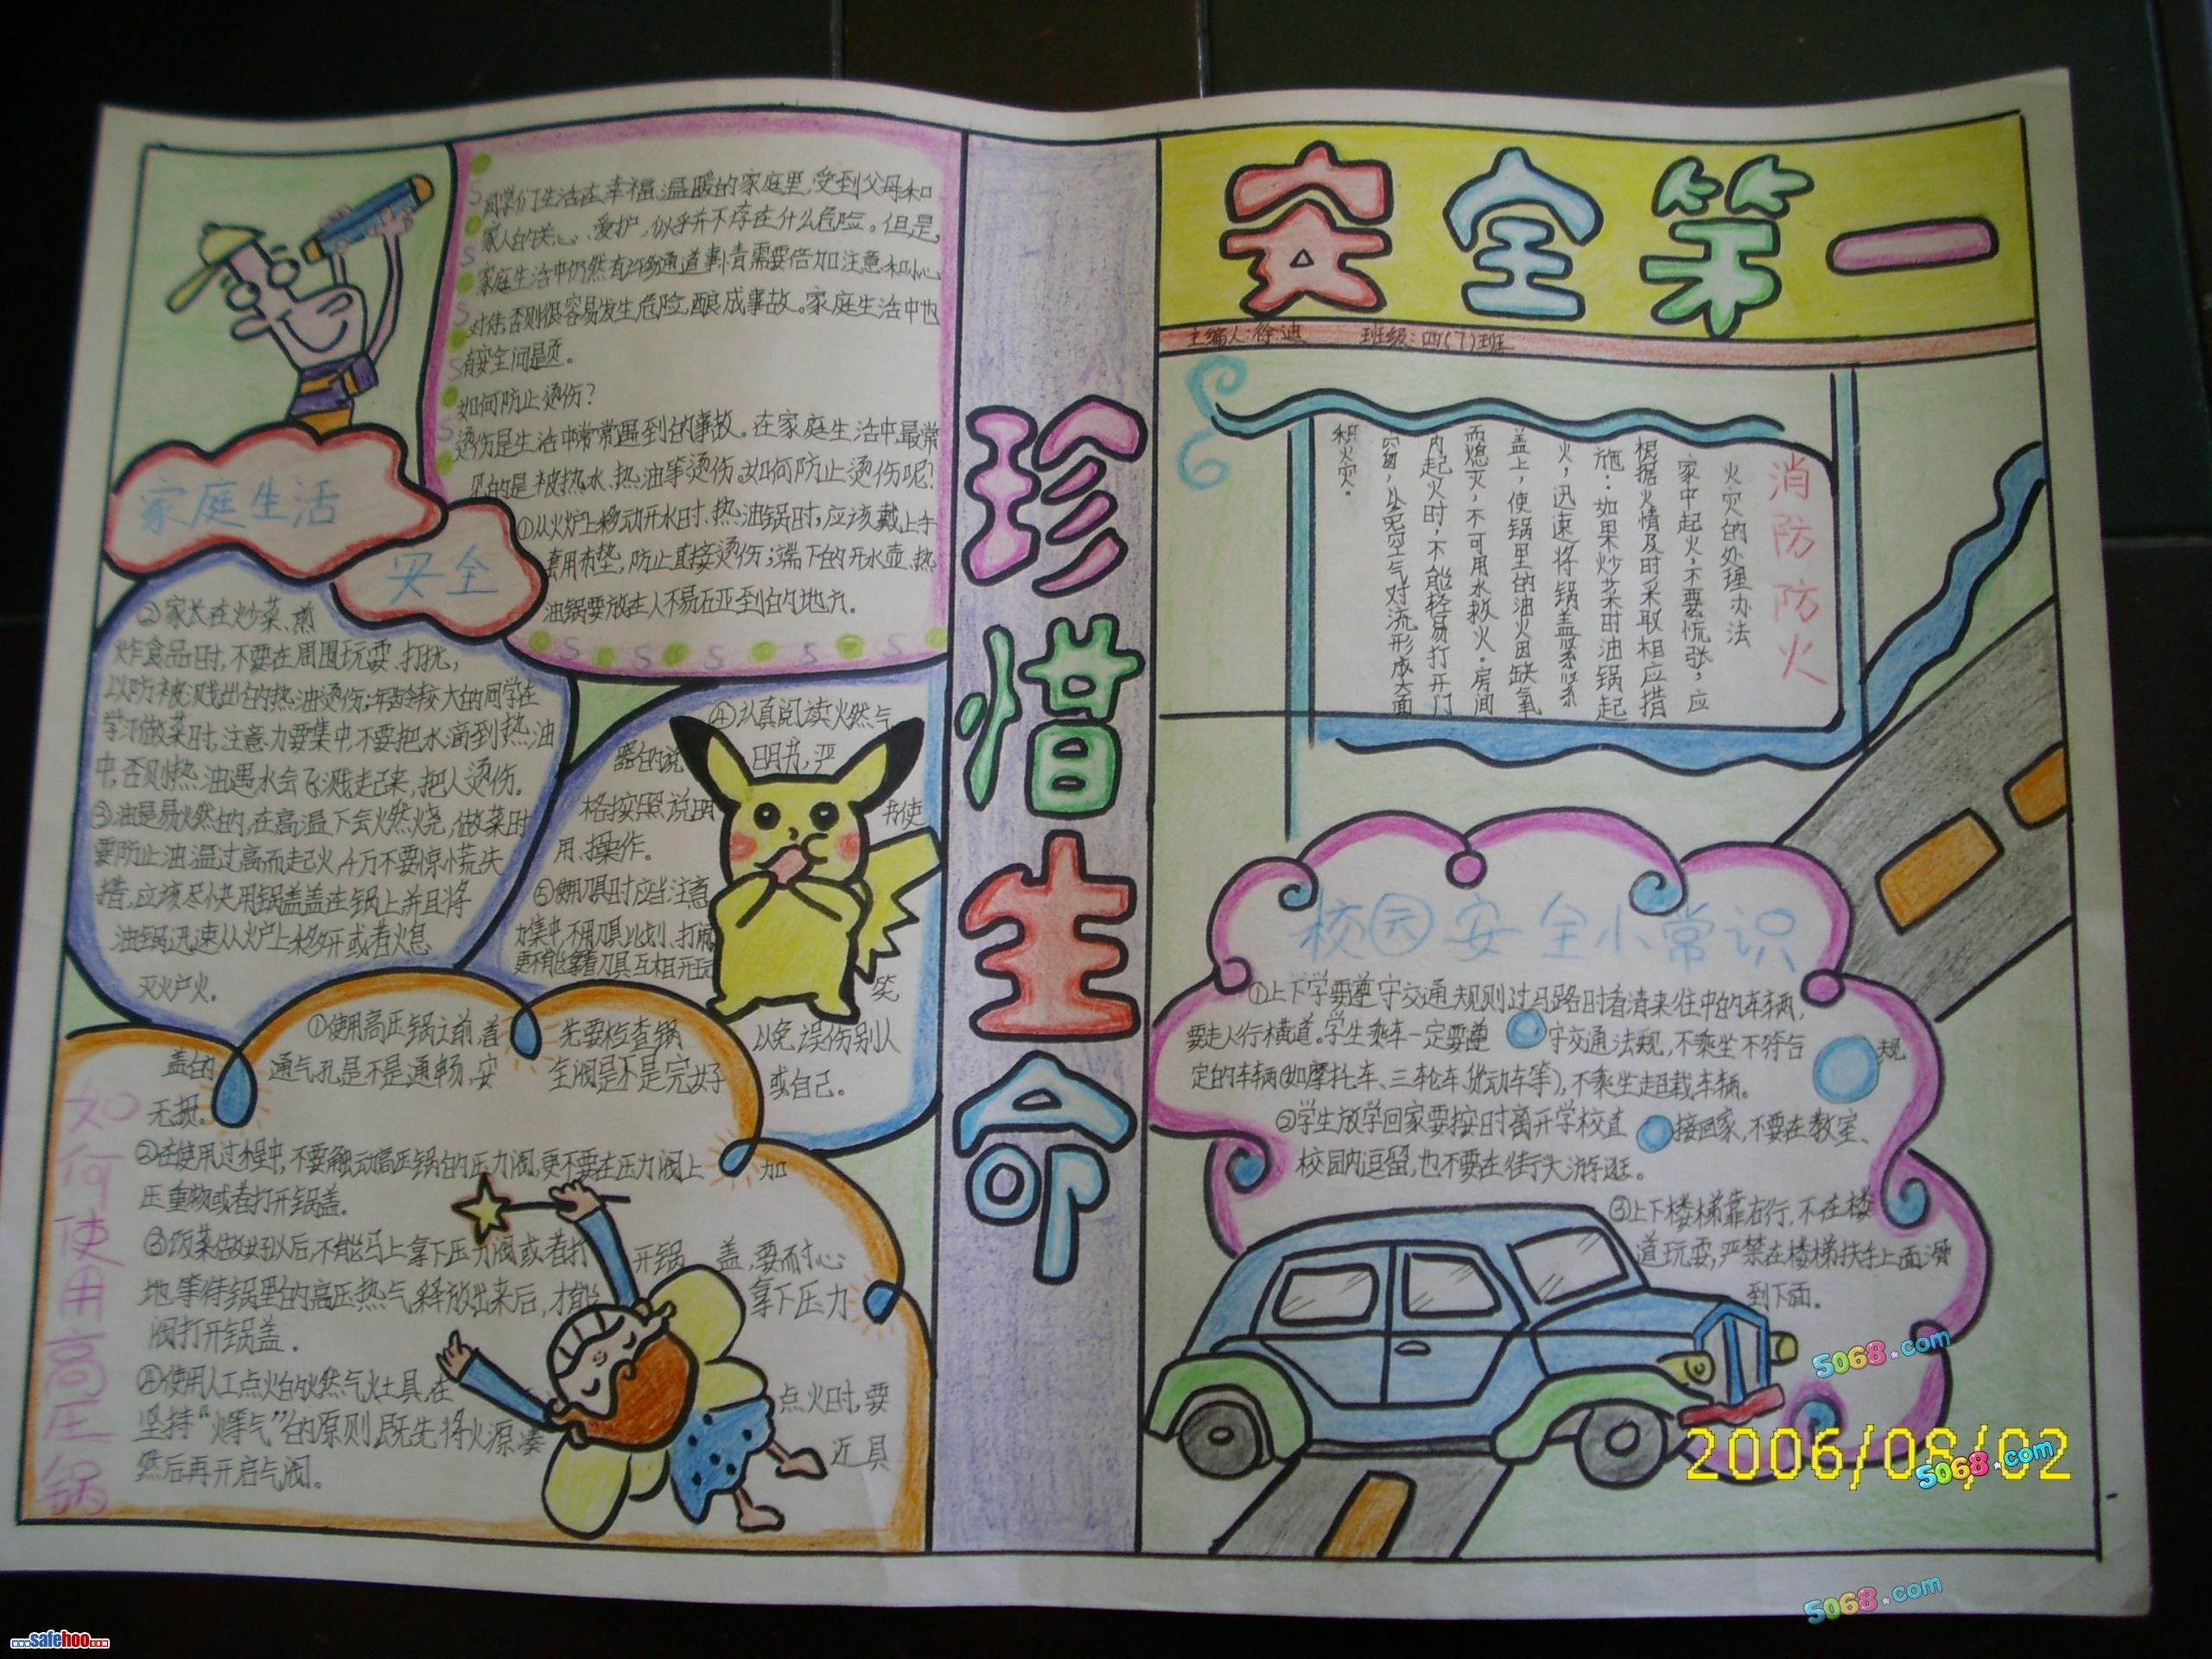 安全第一
主编人:徐迪 班级:四(7)班
珍惜生命
家庭生活
安全
同学们生活在幸福、温暖的家庭里,受到父母和
家人的关心、爱护,似乎并不存在什么危险。但是,
家庭生活中仍然有许多通道事情需要倍加注意和小心
对待,否则很容易发生危险,酿成事故。家庭生活中也
有安全问题。
如何防止烫伤?
烫伤是生活中常常遇到的事故。在家庭生活中,最常
见的是被热水、热油等烫伤。如何防止烫伤呢?
①从火炉上移动开水时、热油锅时,应该戴上手
套用布垫,防止直接烫伤;端下的开水壶、热
油锅要放在人不易碰到的地方。
②家长在炒菜、煎
炸食品时,不要在周围玩耍、打扰,
以防被溅出的热油烫伤;年龄较大的同学在
学习做菜时,注意力要集中,不要把水滴到热油
中,否则热油遇水会飞溅起来,把人烫伤。
③油是易燃的,在高温下会燃烧,做菜时
要防止油温过高而起火,千万不要惊慌失
措,应该尽快用锅盖盖在锅上并且将
油锅迅速从炉上移开或者熄
灭炉火。
④认真阅读燃气
器的说明书,严
格按照说明书使
用、操作。
⑤使用刀具时应当注意
力集中,不用刀具比划、打闹
更不能拿着刀具互相开玩笑
以免误伤别人
或自己。
如何使用高压锅
①使用高压锅之前,首先要检查锅
盖的通气孔是不是通畅,安全阀是不是完好
无损。
②在使用过程中,不要触动高压锅的压力阀,更不要在压力阀上加
压重物或者打开锅盖。
③饭菜做好以后,不能马上拿下压力阀或者打开锅盖,要耐心
地等待锅里的高压热气释放出来后,才能拿下压力
阀打开锅盖。
④使用人工点火的燃气灶具,在点火时,要
坚持“火等气”的原则,既先将火源凑近具
然后再开启气阀。
消防防火
火灾的处理办法
家中起火,不要慌张,应
根据火情及时采取相应措
施:如果炒菜时油锅起
火,迅速将锅盖紧紧
盖上,使锅里的油火因缺氧
而熄灭,不可用水救火。房间
内起火时,不能轻易打开门
窗,以免空气对流形成大面
积火灾。
校园安全小常识
①上下学要遵守交通规则过马路时看清来往中的车辆,
要走人行横道。学生乘车一定要遵守交通法规,不乘坐不符合规
定的车辆(如摩托车、三轮车、货动车等),不乘坐超载车辆。
②学生放学回家要按时离开学校直接回家,不要在教室、
校园内逗留,也不要在街头游逛。
③上下楼梯靠右行,不在楼
道玩耍,严禁在楼梯扶手上面滑
到下面。
5068.com
2006/08/02
5068.com
5068.com
www.safehoo.com